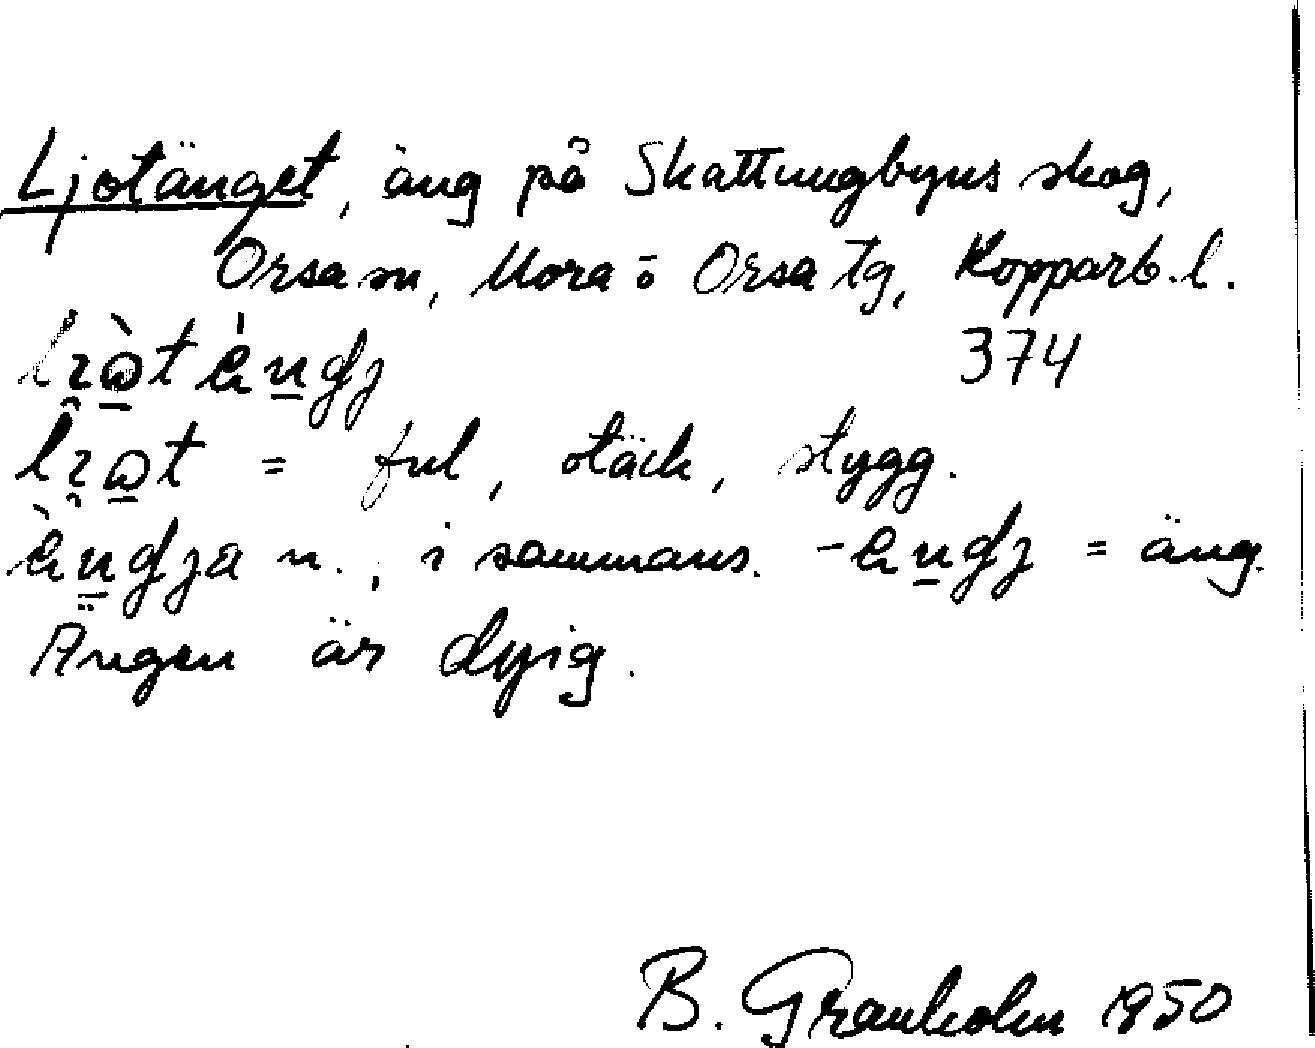 Ljotänget, äng på Skattungbyns skog,
Orsa sn, Mora o Orsa tg, Kopparb. l.
374
ful, otäck, stygg.
n., i sammans. = äng.
Ängen är dyig.
B. Granholm 1950